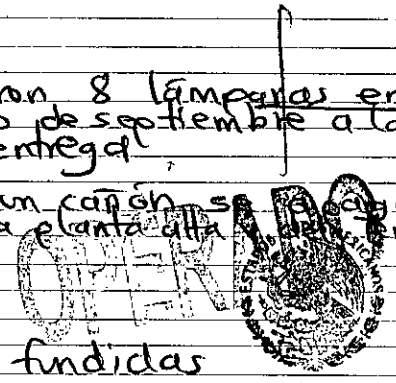 ron 8 lámparas en
o de septiembre a la
entrega
un cañón se
a planta alta
OPER
fundidas